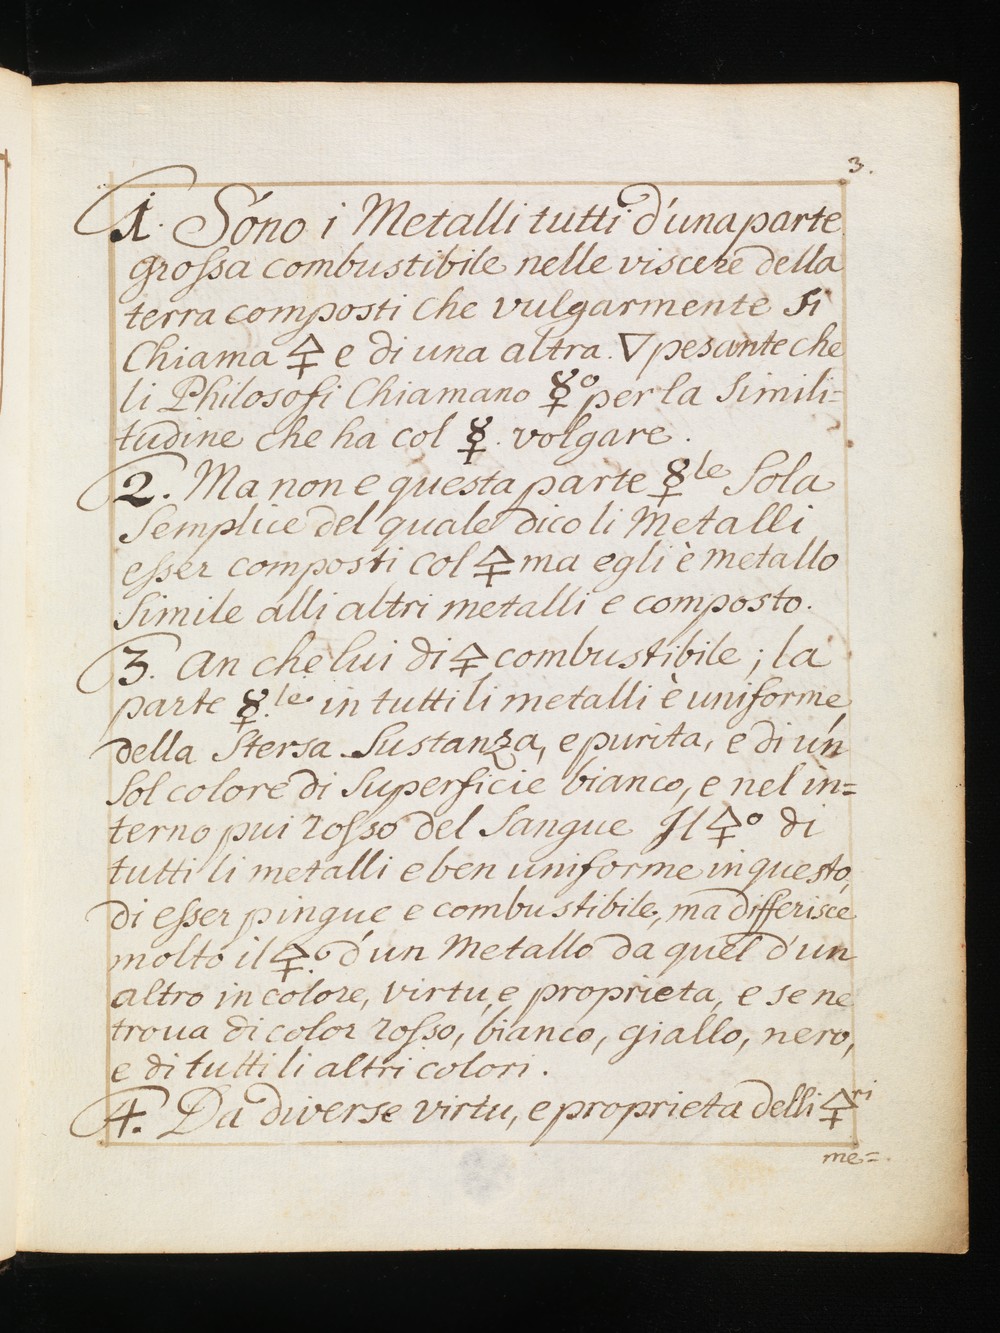 3.
1. Sóno i Metalli tutti d'una parte
grossa combustibile nelle viscere della
terra composti che vulgarmente si
Chiama 🜍 e di una altra. 🜄 pesante che
li Philosofi Chiamano ☿o per la Simili=
tudine che ha col ☿. volgare.
2. Ma non e questa parte ☿le Sola
Semplice del quale dico li Metalli
esser composti col 🜍 ma egli è metallo
Simile alli altri metalli e composto.
3. An che lui di 🜍 combustibile; la
parte ☿.le in tutti li metalli è uniforme
della Stersa Sustanza, e purita, e di ún
Sol colore di Superficie bianco, e nel in=
terno pui rosso del Sangue Il 🜍o di
tutti li metalli e ben uniforme in questo,
di esser pingue e combustibile, ma differisce
molto il 🜍.o d'un Metallo da quel d'un
altro in colore, virtu, e proprieta, e se ne
troua di color rosso, bianco, giallo, nero,
e di tutti li altri colori.
4. Da diverse virtu, e proprieta delli 🜍ri
me=